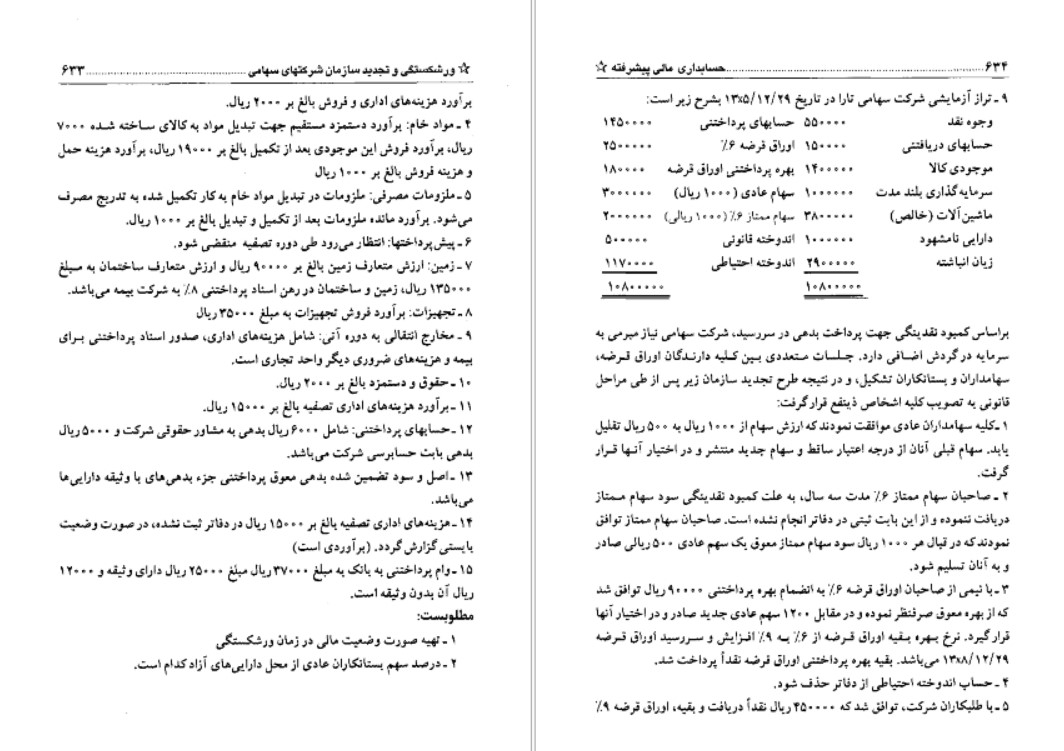 ☆ ورشکستگی و تجدید سازمان شرکتهای سهامی ............................................... ۶۳۳
برآورد هزینه‌های اداری و فروش بالغ بر ۲۰۰۰ ریال.
۴ ـ مواد خام: برآورد دستمزد مستقیم جهت تبدیل مواد به کالای ساخته شده ۷۰۰۰
ریال، برآورد فروش این موجودی بعد از تکمیل بالغ بر ۱۹۰۰۰ ریال، برآورد هزینه حمل
و هزینه فروش بالغ بر ۱۰۰۰ ریال
۵ ـ ملزومات مصرفی: ملزومات در تبدیل مواد خام به کار تکمیل شده به تدریج مصرف
می‌شود. برآورد مانده ملزومات بعد از تکمیل و تبدیل بالغ بر ۱۰۰۰ ریال.
۶ ـ پیش‌پرداختها: انتظار می‌رود طی دوره تصفیه منقضی شود.
۷ ـ زمین: ارزش متعارف زمین بالغ بر ۹۰۰۰۰ ریال و ارزش متعارف ساختمان به مبلغ
۱۳۵۰۰۰ ریال، زمین و ساختمان در رهن اسناد پرداختنی ۸٪ به شرکت بیمه می‌باشد.
۸ ـ تجهیزات: برآورد فروش تجهیزات به مبلغ ۳۵۰۰۰ ریال
۹ ـ مخارج انتقالی به دوره آتی: شامل هزینه‌های اداری، صدور اسناد پرداختنی برای
بیمه و هزینه‌های ضروری دیگر واحد تجاری است.
۱۰ ـ حقوق و دستمزد بالغ بر ۲۰۰۰ ریال.
۱۱ ـ برآورد هزینه‌های اداری تصفیه بالغ بر ۱۵۰۰۰ ریال.
۱۲ ـ حسابهای پرداختنی: شامل ۶۰۰۰ ریال بدهی به مشاور حقوقی شرکت و ۵۰۰۰ ریال
بدهی بابت حسابرسی شرکت می‌باشد.
۱۳ ـ اصل و سود تضمین شده بدهی معوق پرداختنی جزء بدهی‌های با وثیقه دارایی‌ها
می‌باشد.
۱۴ ـ هزینه‌های اداری تصفیه بالغ بر ۱۵۰۰۰ ریال در دفاتر ثبت نشده، در صورت وضعیت
بایستی گزارش گردد. (برآوردی است)
۱۵ ـ وام پرداختنی به بانک به مبلغ ۳۷۰۰۰ ریال مبلغ ۲۵۰۰۰ ریال دارای وثیقه و ۱۲۰۰۰
ریال آن بدون وثیقه است.
مطلوبست:
۱ ـ تهیه صورت وضعیت مالی در زمان ورشکستگی
۲ ـ درصد سهم بستانکاران عادی از محل دارایی‌های آزاد کدام است.
۶۳۴ ............................................... حسابداری مالی پیشرفته ☆
۹ ـ تراز آزمایشی شرکت سهامی تارا در تاریخ ۱۳x۵/۱۲/۲۹ بشرح زیر است:
وجوه نقد ۵۵۰۰۰۰ حسابهای پرداختنی ۱۴۵۰۰۰۰
حسابهای دریافتنی ۱۵۰۰۰۰ اوراق قرضه ۶٪ ۲۵۰۰۰۰۰
موجودی کالا ۱۴۰۰۰۰۰ بهره پرداختنی اوراق قرضه ۱۸۰۰۰۰
سرمایه گذاری بلند مدت ۱۰۰۰۰۰۰ سهام عادی (۱۰۰۰ ریال) ۳۰۰۰۰۰۰
ماشین آلات (خالص) ۳۸۰۰۰۰۰ سهام ممتاز ۶٪ (۱۰۰۰ ریالی) ۲۰۰۰۰۰۰
دارایی نامشهود ۱۰۰۰۰۰۰ اندوخته قانونی ۵۰۰۰۰۰
زیان انباشته ۲۹۰۰۰۰۰ اندوخته احتیاطی ۱۱۷۰۰۰۰
۱۰۸۰۰۰۰۰ ۱۰۸۰۰۰۰۰
براساس کمبود نقدینگی جهت پرداخت بدهی در سررسید، شرکت سهامی نیاز مبرمی به
سرمایه در گردش اضافی دارد. جلسات متعددی بین کلیه دارندگان اوراق قرضه،
سهامداران و بستانکاران تشکیل، و در نتیجه طرح تجدید سازمان زیر پس از طی مراحل
قانونی به تصویب کلیه اشخاص ذینفع قرار گرفت:
۱ ـ کلیه سهامداران عادی موافقت نمودند که ارزش سهام از ۱۰۰۰ ریال به ۵۰۰ ریال تقلیل
یابد. سهام قبلی آنان از درجه اعتبار ساقط و سهام جدید منتشر و در اختیار آنها قرار
گرفت.
۲ ـ صاحبان سهام ممتاز ۶٪ مدت سه سال، به علت کمبود نقدینگی سود سهام ممتاز
دریافت ننموده و از این بابت ثبتی در دفاتر انجام نشده است. صاحبان سهام ممتاز توافق
نمودند که در قبال هر ۱۰۰۰ ریال سود سهام ممتاز معوق یک سهم عادی ۵۰۰ ریالی صادر
و به آنان تسلیم شود.
۳ ـ با نیمی از صاحبان اوراق قرضه ۶٪ به انضمام بهره پرداختنی ۹۰۰۰۰ ریال توافق شد
که از بهره معوق صرفنظر نموده و در مقابل ۱۲۰۰ سهم عادی جدید صادر و در اختیار آنها
قرار گیرد. نرخ بهره بقیه اوراق قرضه از ۶٪ به ۹٪ افزایش و سررسید اوراق قرضه
۱۳x۸/۱۲/۲۹ می‌باشد. بقیه بهره پرداختنی اوراق قرضه نقداً پرداخت شد.
۴ ـ حساب اندوخته احتیاطی از دفاتر حذف شود.
۵ ـ با طلبکاران شرکت، توافق شد که ۴۵۰۰۰۰ ریال نقداً دریافت و بقیه، اوراق قرضه ۹٪